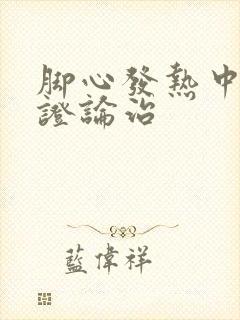 脚心發熱中
證論治
藍偉祥